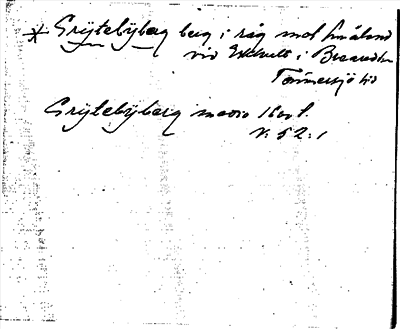 * Grytebyberg berg i råg mot Småland
vid Ekhult i Breared sn
Tönnersjö hd
Grytebyberg 1600 t.
V: 52: 1